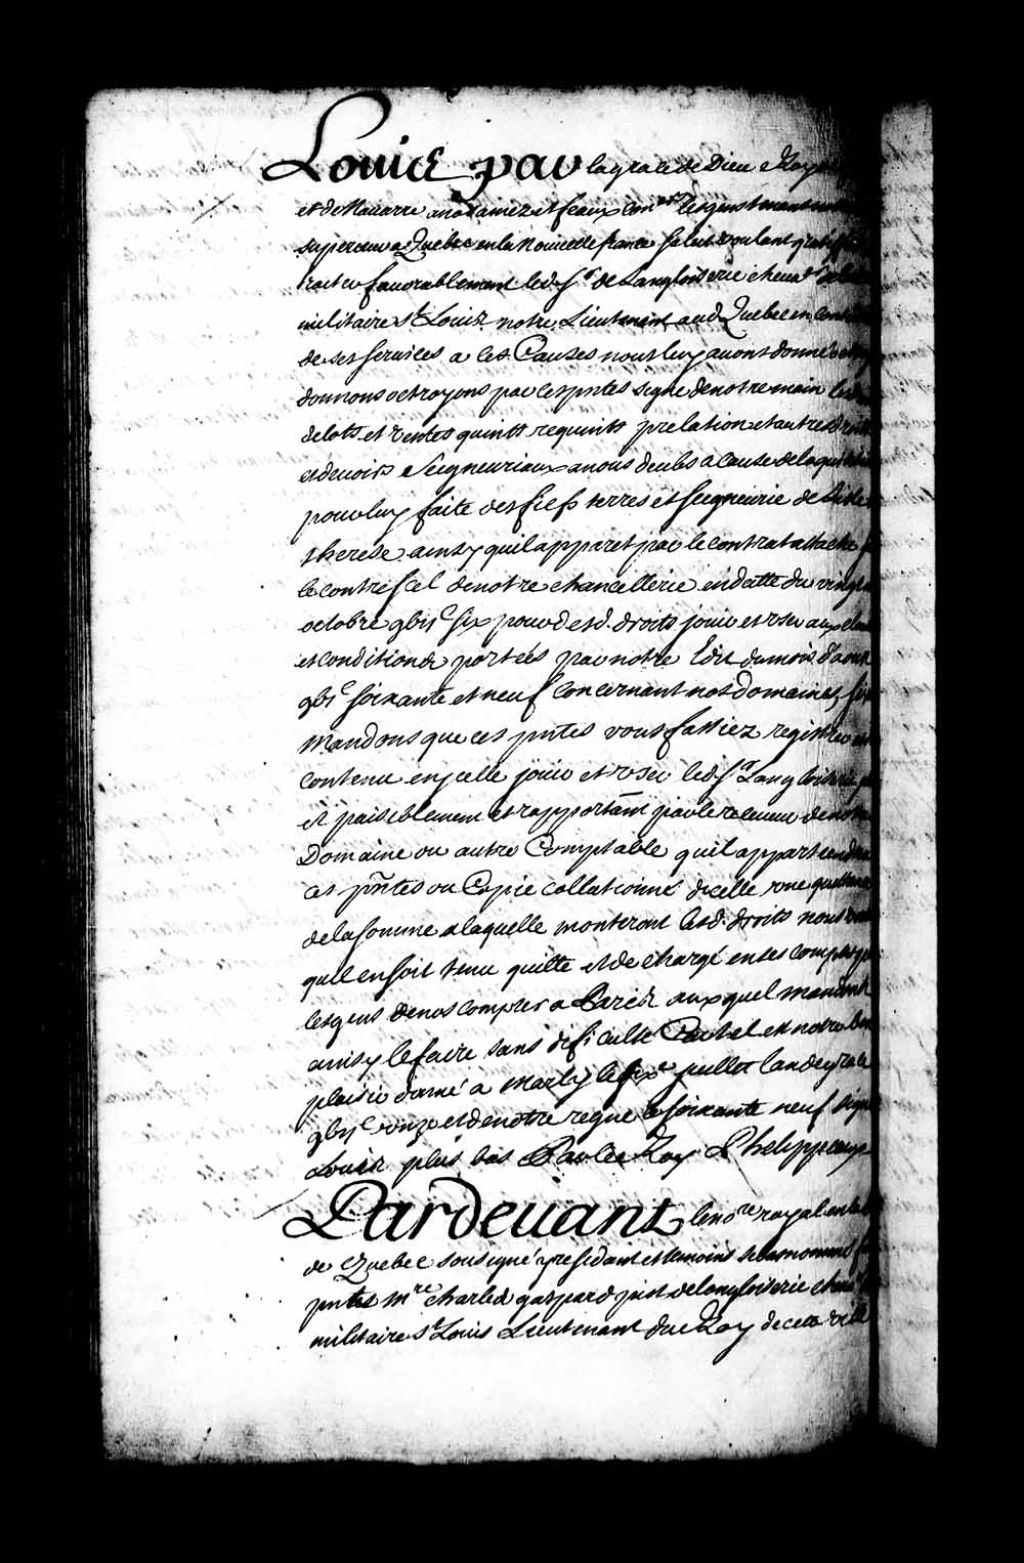 Louis par la grace de Dieu Roy
et de Nauarre a nos amez et feaux Con.ers les gens tenant
superieur a Quebec en la Nouvelle france salut voulant
traiter favorablement led. Sr de Langloiserie cheuer
militaire St Louis notre Lieutenant aud. Quebec en
de ses services a ces Causes nous luy auons donné
donnons octroyons par ces pntes signé de notre main les
de lotts et ventes quints requints prelation et autres droits
et devoirs Seigneuriaux a nous deubs a Cause de laquisition
par luy faite des fiefs terres et seigneurie de
therese ainsy quil apparet par le contrat attaché
le contrescel de notre chancellerie en datte du vingt
octobre gbii c six pour desd. droits jouir et user aux
et conditions portées par notre Edit du mois d'aout
gbi c soixante et neuf concernant nos domaines, si
Mandons que ces pntes vous fassiez registrer
contenu en jcelle jouir et user led. Sr Langloiserie
et paisiblement et rapportant par le receueur de notre
Domaine ou autre Comptable quil appartiendra
ces pntes ou Copie collationné dicelle une quittance
de la somme a laquelle monteront lesd. droits nous
quil en soit tenu quitte et de chargé en ses comptes
les gens de nos comptes a Paris auxquel mandons
ainsy le faire sans dificulté Car tel est notre bon
plaisir donné a Marly le six juillet lan de grace
gbii c onze et de notre regne le soixante neuf signé
Louis plus bas Par le Roy Phelippeaux
Pardeuant le no.re royal en la
de Quebec sousigné y residant et temoins
pntes Mre Charles gaspard piot de langloiserie cheuer
militaire St Louis Lieutenant du Roy de cette ville